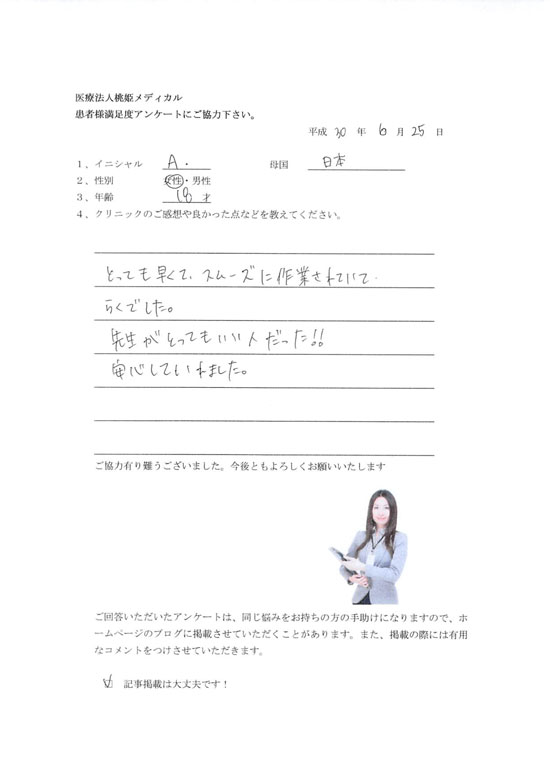 医療法人桃姫メディカル
患者様満足度アンケートにご協力下さい。
平成 30 年 6 月 25 日
1、イニシャル A. 母国 日本
2、性別 女性・男性
3、年齢 18 才
4、クリニックのご感想や良かった点などを教えてください。
とっても早くて、スムーズに作業されていて
らくでした。
先生がとってもいい人だった!!
安心していれました。
ご協力有り難うございました。今後ともよろしくお願いいたします
ご回答いただいたアンケートは、同じ悩みをお持ちの方の手助けになりますので、ホ
ームページのブログに掲載させていただくことがあります。また、掲載の際には有用
なコメントをつけさせていただきます。
☑ 記事掲載は大丈夫です！